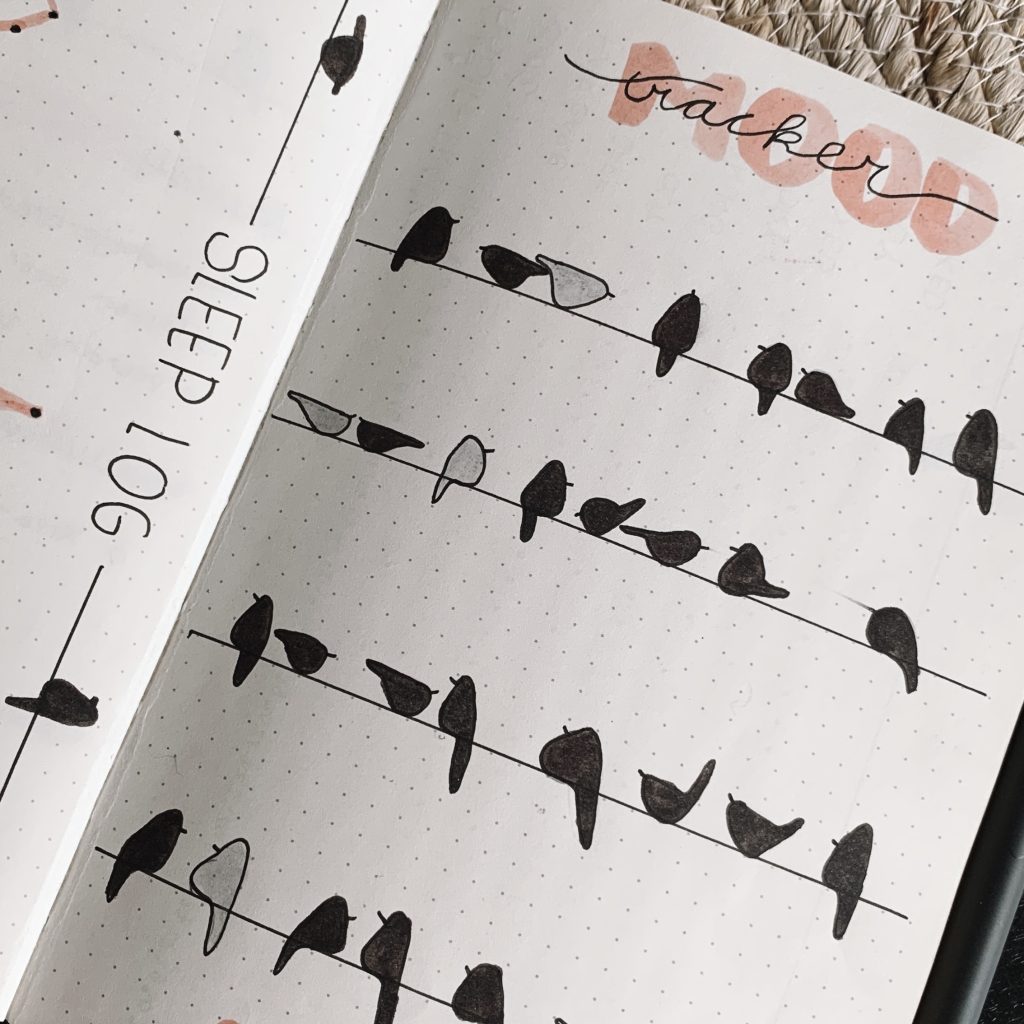 SLEEP LOG
MOOD
tracker